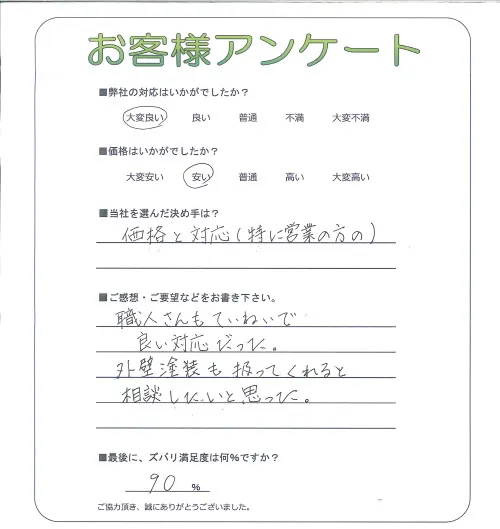 お客様アンケート
■弊社の対応はいかがでしたか？
大変良い 良い 普通 不満 大変不満
■価格はいかがでしたか？
大変安い 安い 普通 高い 大変高い
■当社を選んだ決め手は？
価格と対応(特に営業の方の)
■ご感想・ご要望などをお書き下さい。
職人さんもていねいで
良い対応だった。
外壁塗装も扱ってくれると
相談したいと思った。
■最後に、ズバリ満足度は何%ですか？
90 %
ご協力頂き、誠にありがとうございました。